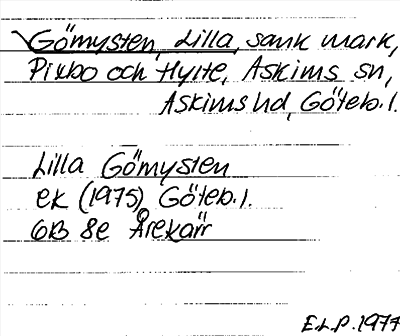 Gömysten, Lilla, sank mark,
Pixbo och Hylte, Askims sn,
Askims hd, Göteb. l.
Lilla Gömysten
ek (1975), Göteb. l.
6B 8e Årekärr
E.L.P. 1977